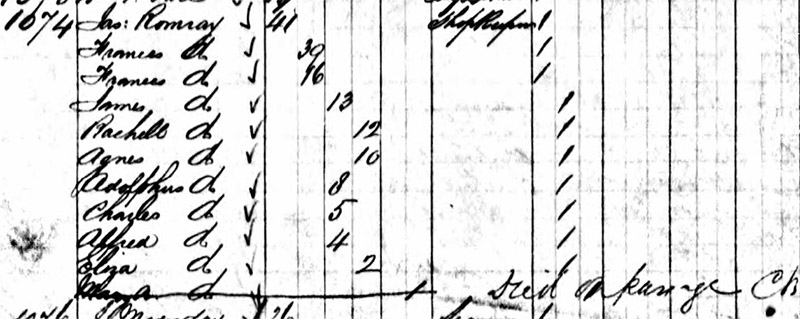 1074 Jas: Romray 41 Shopkeeper
Frances do 39
Frances do 16
James do 13
Rachell do 12
Agnes do 10
Adolphus do 8
Charles do 5
Alfred do 4
Eliza do 2
do Died on passage
26